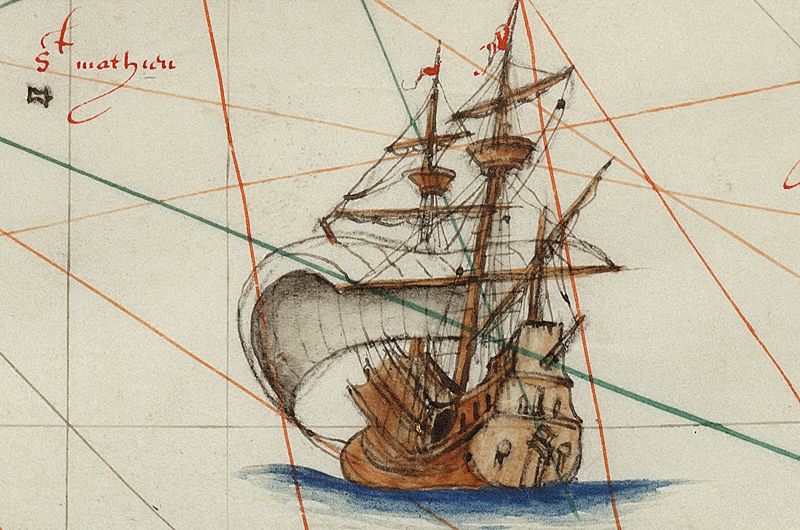 St mathieu